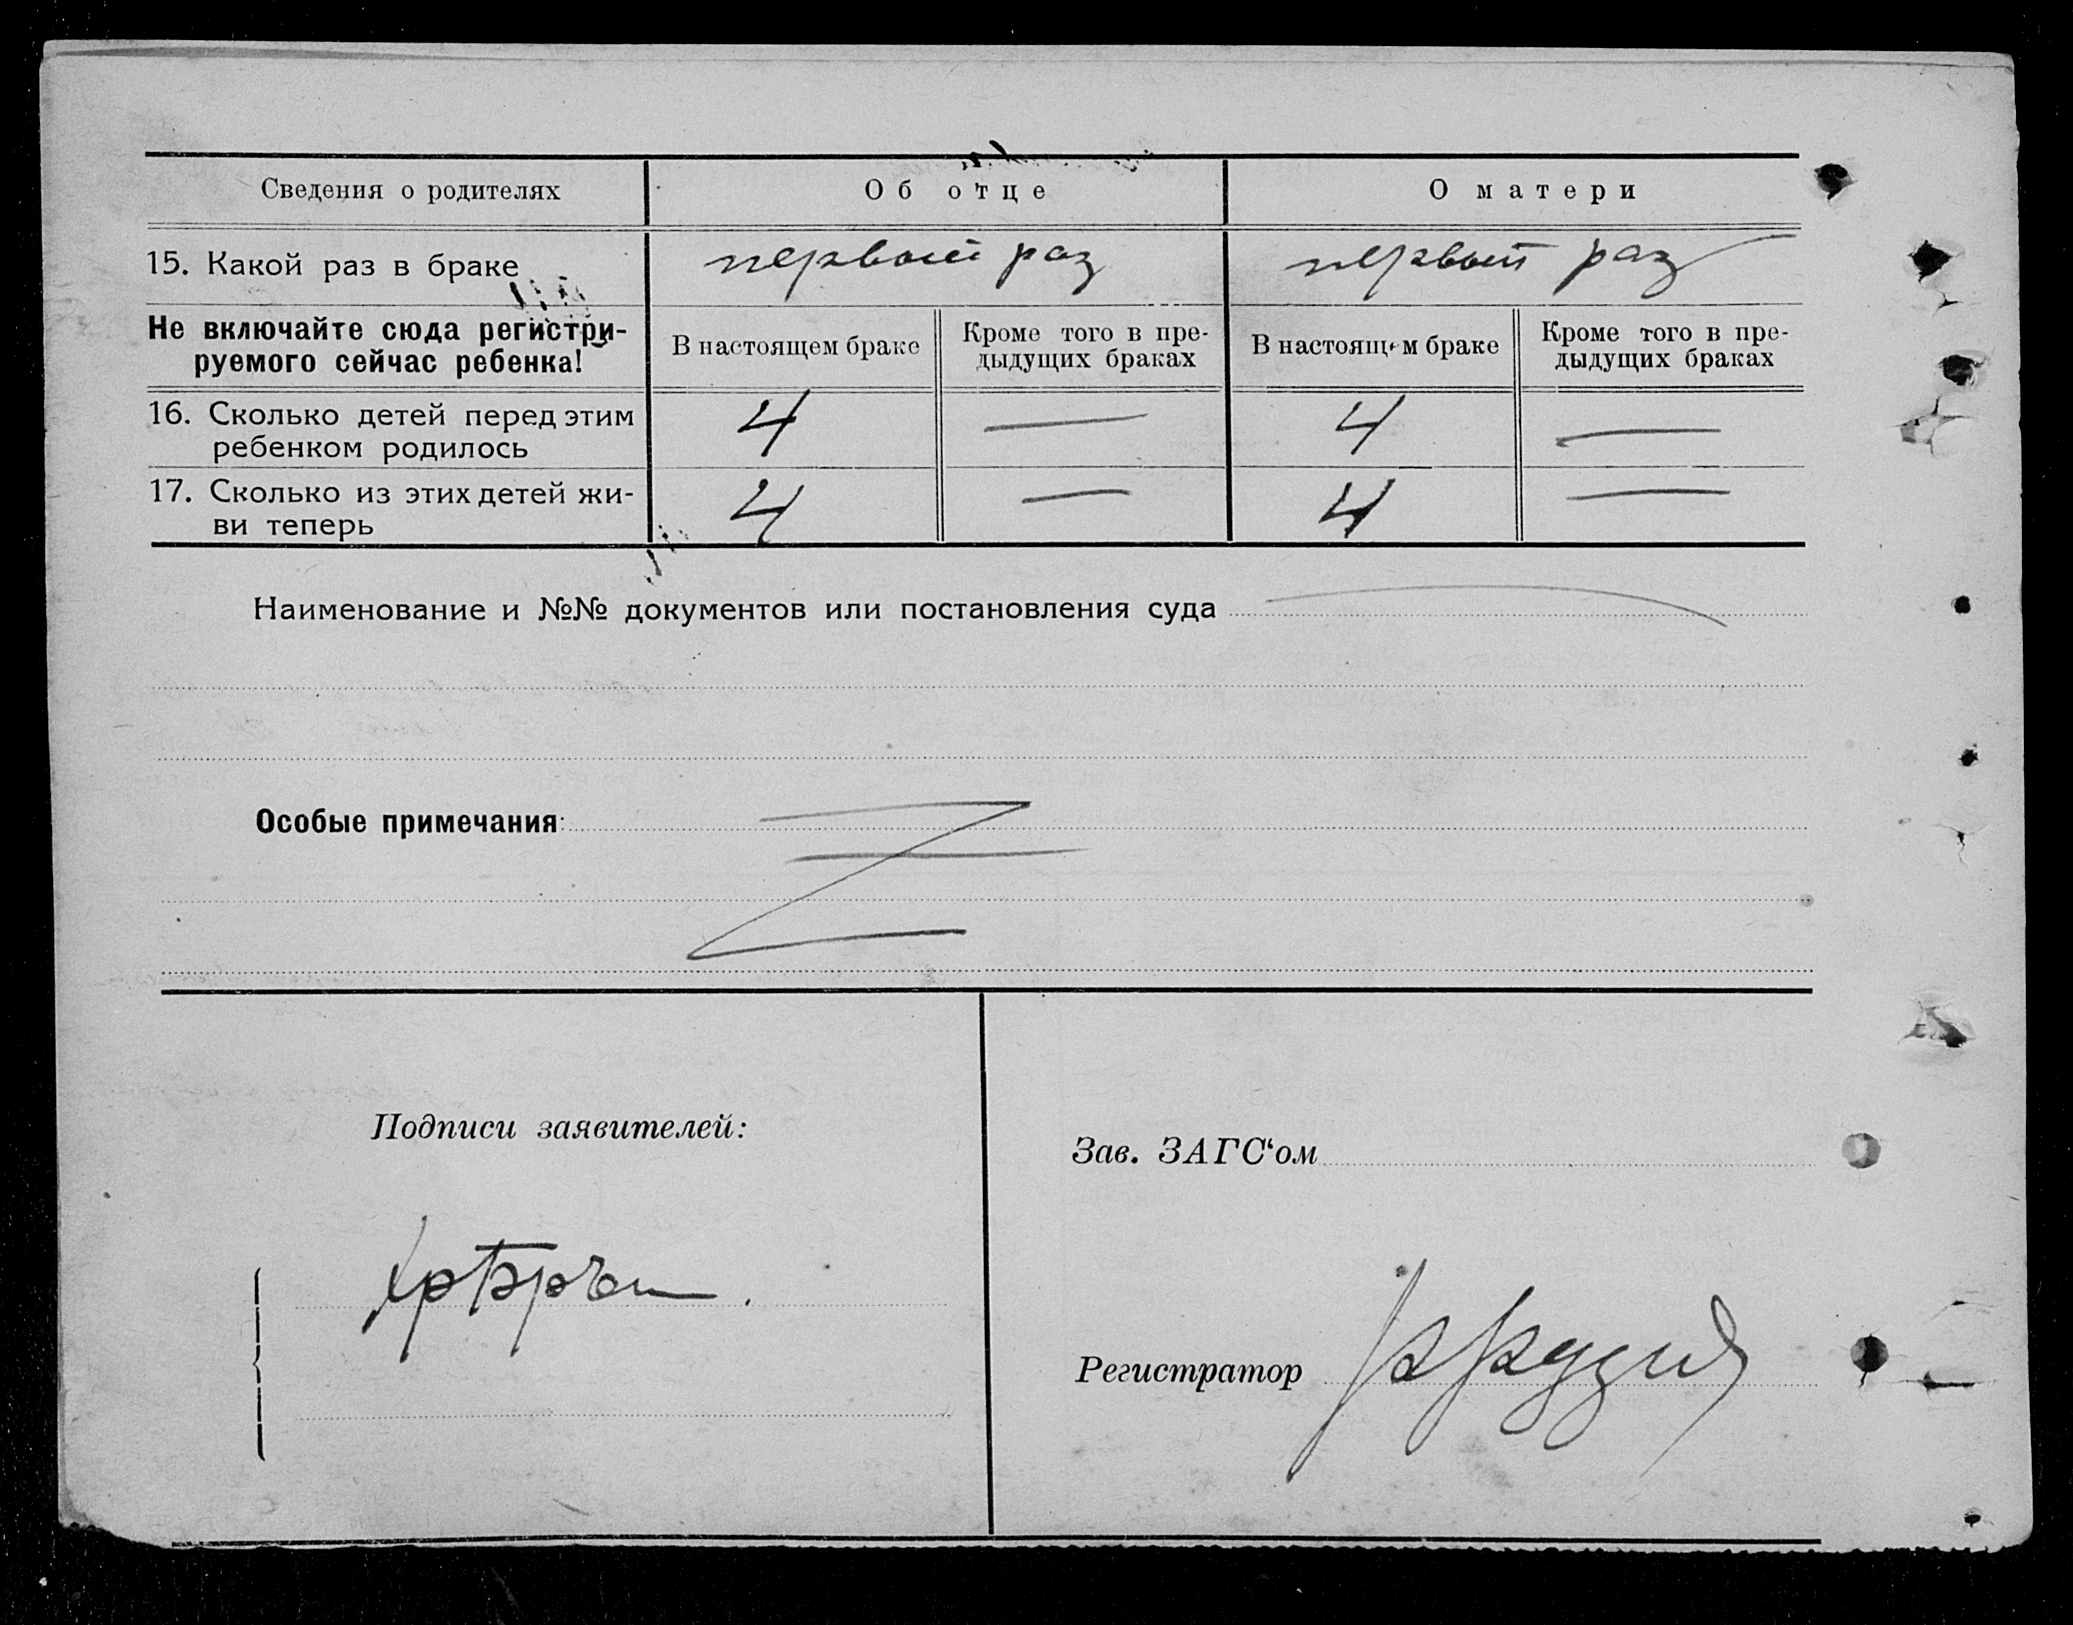 Сведения о родителях Об отце О матери
15. Какой раз в браке первый раз первый раз
Не включайте сюда регистри-
руемого сейчас ребенка!
В настоящем браке Кроме того в пре-
дыдущих браках
В настоящем браке Кроме того в пре-
дыдущих браках
16. Сколько детей перед этим
ребенком родилось
4 — 4 —
17. Сколько из этих детей жи-
ви теперь
4 — 4 —
Наименование и №№ документов или постановления суда
Особые примечания:
Подписи заявителей:
Зав. ЗАГС‘ом
Регистратор